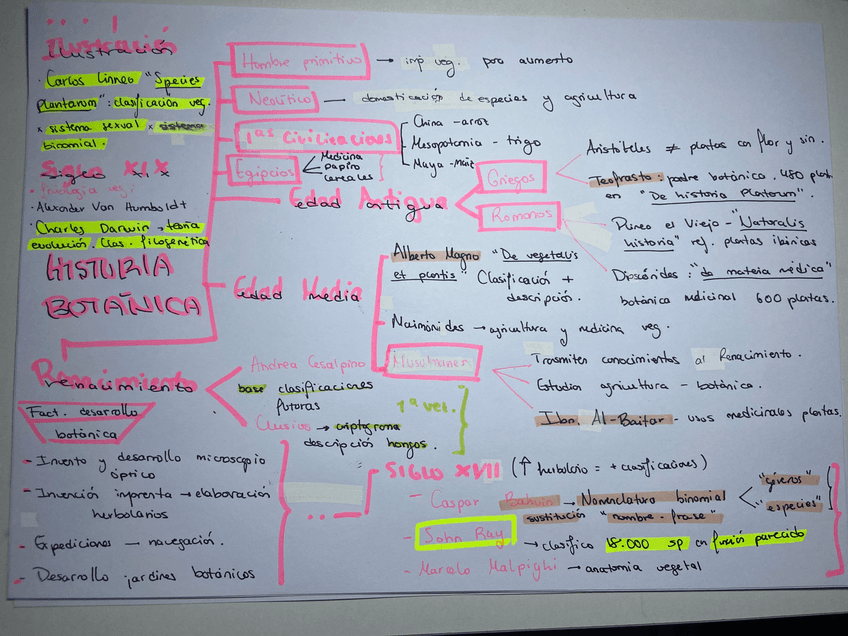 Ilustración
· Carlos Linneo "Species
Plantarum": clasificación veg.
x sistema sexual x sistema
binomial.
Siglo XIX
· Fisiología veg.
· Alexander Van Humboldt
Charles Darwin → teoría
evolución. Clas. filogenética
HISTORIA
BOTÁNICA
Hombre primitivo → imp veg. para aumento
Neolítico → domesticación de especies y agricultura
1ªs Civilizaciones
China - arroz
Mesopotamia - trigo
Maya - maíz
Egipcios
Medicina
papiro
cereales
Edad Antigua
Griegos
Aristóteles ≠ plantas con flor y sin.
Teofrasto: padre botánica. 480 plant.
en "De historia Plantarum".
Romanos
Plineo el Viejo - "Naturalis
historia" ref. plantas ibéricas
Dioscórides: "da materia médica"
botánica medicinal 600 plantas.
Edad Media
Alberto Magno "De vegetalis
et plantis" Clasificación +
descripción.
Maimónides → agricultura y medicina veg.
Musulmanes
Transmiten conocimientos al Renacimiento.
Estudian agricultura - botánica.
Ibn. Al-Baitar - usos medicinales plantas.
Renacimiento
Andrea Cesalpino
base clasificaciones
futuras
Clusius → criptograma
descripción hongos.
1ª vez.
Fact. desarollo
botánica
- Invento y desarrollo microscopio
óptico
- Invención imprenta → elaboración
herbolarios
- Expediciones — navegación.
- Desarrollo jardines botánicos
SIGLO XVII (↑ herbolario = + clasificaciones)
- Caspar Bahuin → Nomenclatura binomial
"géneros"
"especies"
sustitución "nombre-frase"
- John Ray → clasifico 18.000 sp en fusión parecido
- Marcelo Malpighi → anatomía vegetal